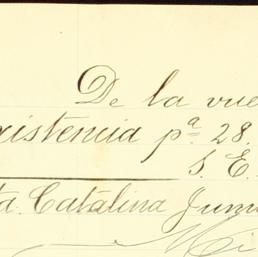 De la vue
xistencia pª 28.
S. E.
ta. Catalina Juni
Mi